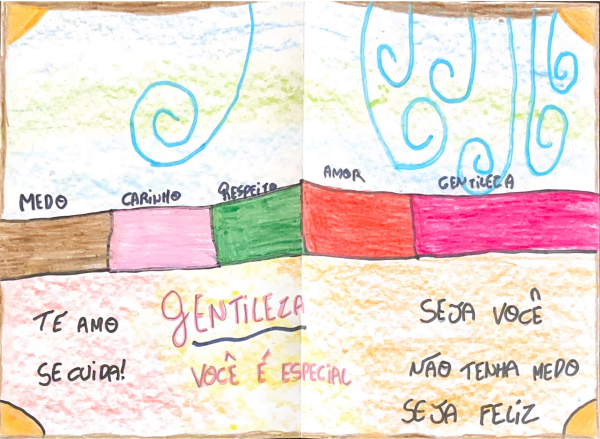 MEDO
CARINHO
RESPEITO
AMOR
GENTILEZA
TE AMO
SE CUIDA!
GENTILEZA
VOCÊ É ESPECIAL
SEJA VOCÊ
NÃO TENHA MEDO
SEJA FELIZ